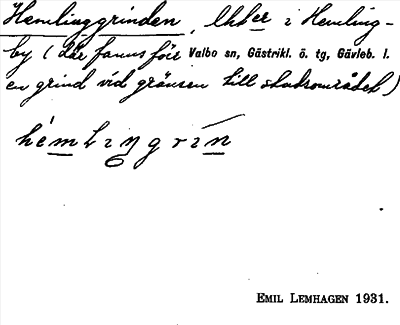 Hemlinggrinden, åker i Hemling-
by (där fanns förr Valbo sn, Gästrikl. ö. tg, Gävleb. l.
en grind vid gränsen till stadsområdet)
hémlingrín
EMIL LEMHAGEN 1931.